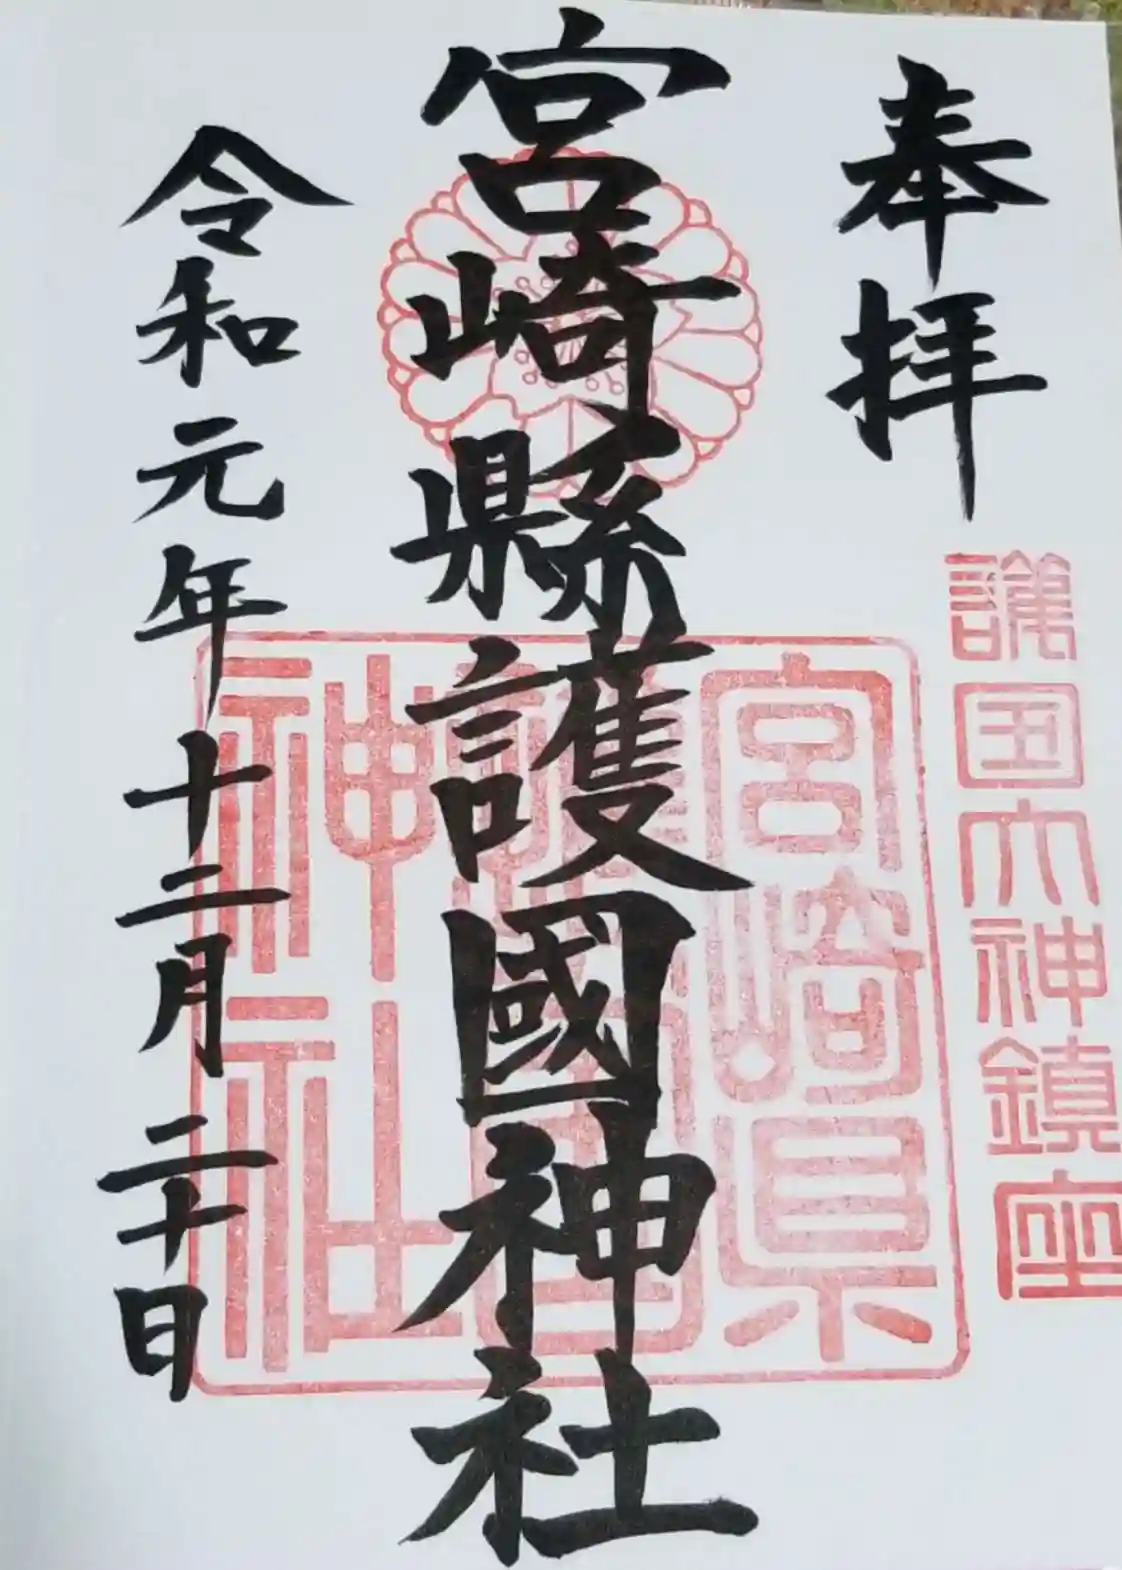 奉拝
護国大神鎮座
宮崎縣護國神社
宮崎県
護国
神社
令和元年十二月二十日